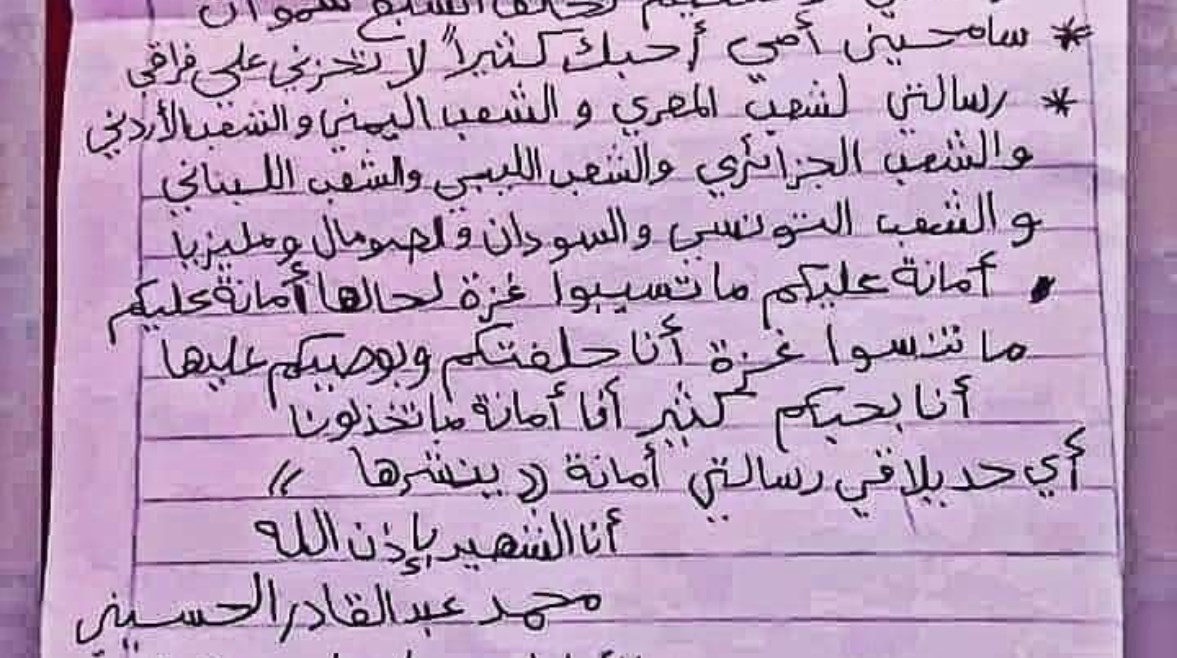 * سامحيني أمي أحبك كثيراً لا تحزني على فراقي
* رسالتي لشعب المصري و الشعب اليمني والشعب الأردني
والشعب الجزائري والشعب الليبي والشعب اللبناني
و الشعب التونسي والسودان و لصومال ومليزيا
• أمانة عليكم ما تسيبوا غزة لحالها أمانة عليكم
ما تنسوا غزة أنا حلفتكم وبوصيكم عليها
أنا بحبكم كثير أنا أمانة ما تخذلونا
أي حد بيلاقي رسالتي أمانة (( ينشرها ))
أنا الشهيد بإذن الله
محمد عبد القادر الحسيني